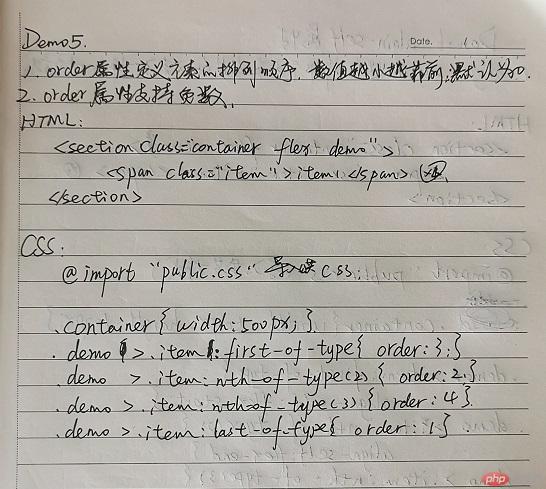 Demo5.
Date.
1. order属性定义元素的排列顺序. 数值越小越靠前, 默认为0.
2. order属性支持负数.
HTML:
<section class="container flex demo">
<span class="item">item1</span>
</section>
CSS:
@import "public.css" 导入 css;
.container{ width:500px; }
.demo > .item:first-of-type{ order:3;}
.demo > .item:nth-of-type(2) { order:2;}
.demo > .item:nth-of-type(3) { order:4}
.demo > .item:last-of-type{ order:1}
php